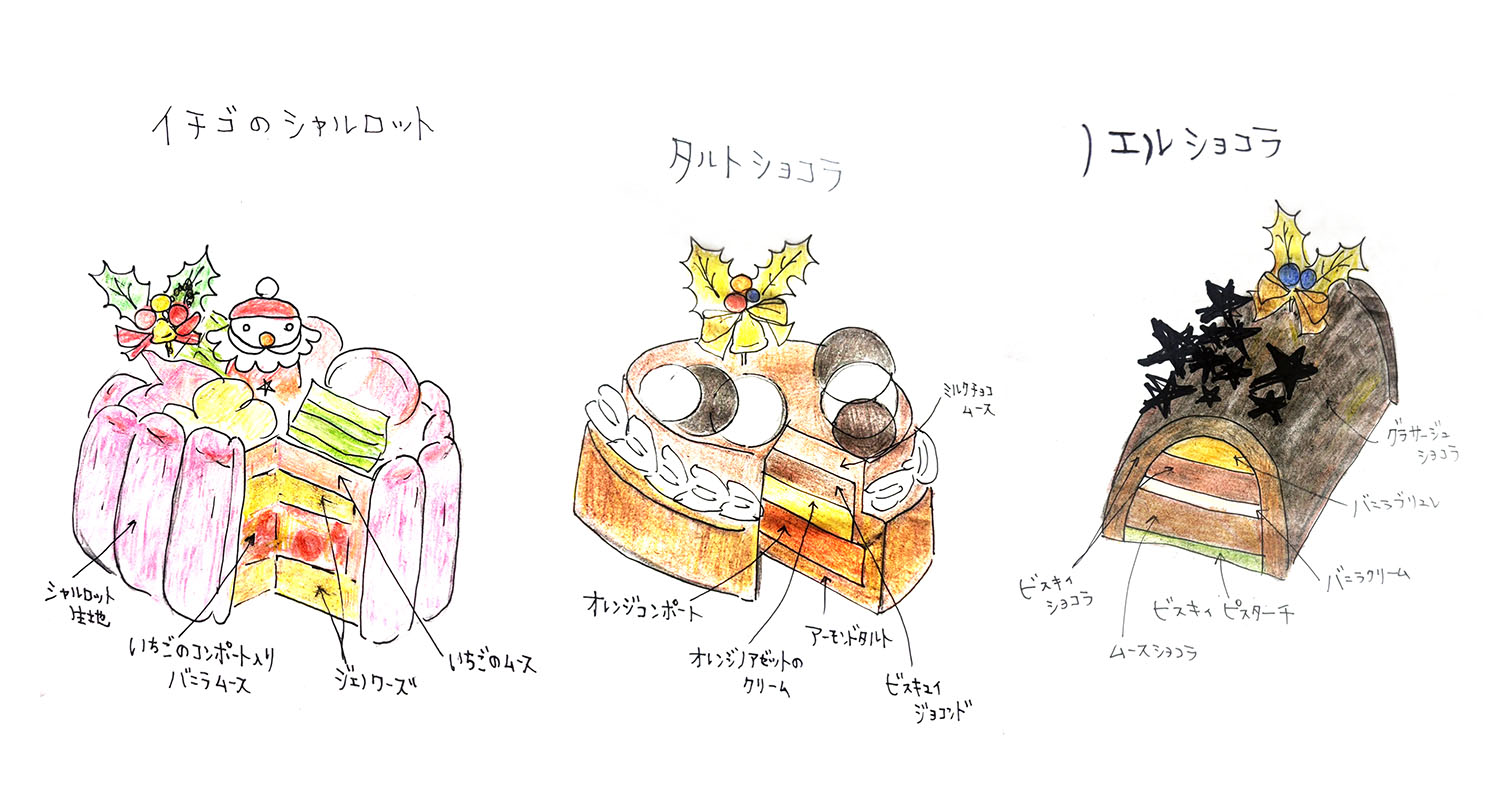 イチゴのシャルロット
シャルロット
生地
いちごのコンポート入り
バニラムース
ジェノワーズ
いちごのムース
タルトショコラ
ミルクチョコ
ムース
オレンジコンポート
オレンジノアゼットの
クリーム
アーモンドタルト
ビスキュイ
ジョコンド
ノエルショコラ
グラサージュ
ショコラ
バニラブリュレ
バニラクリーム
ビスキィ
ショコラ
ビスキィ ピスターチ
ムースショコラ